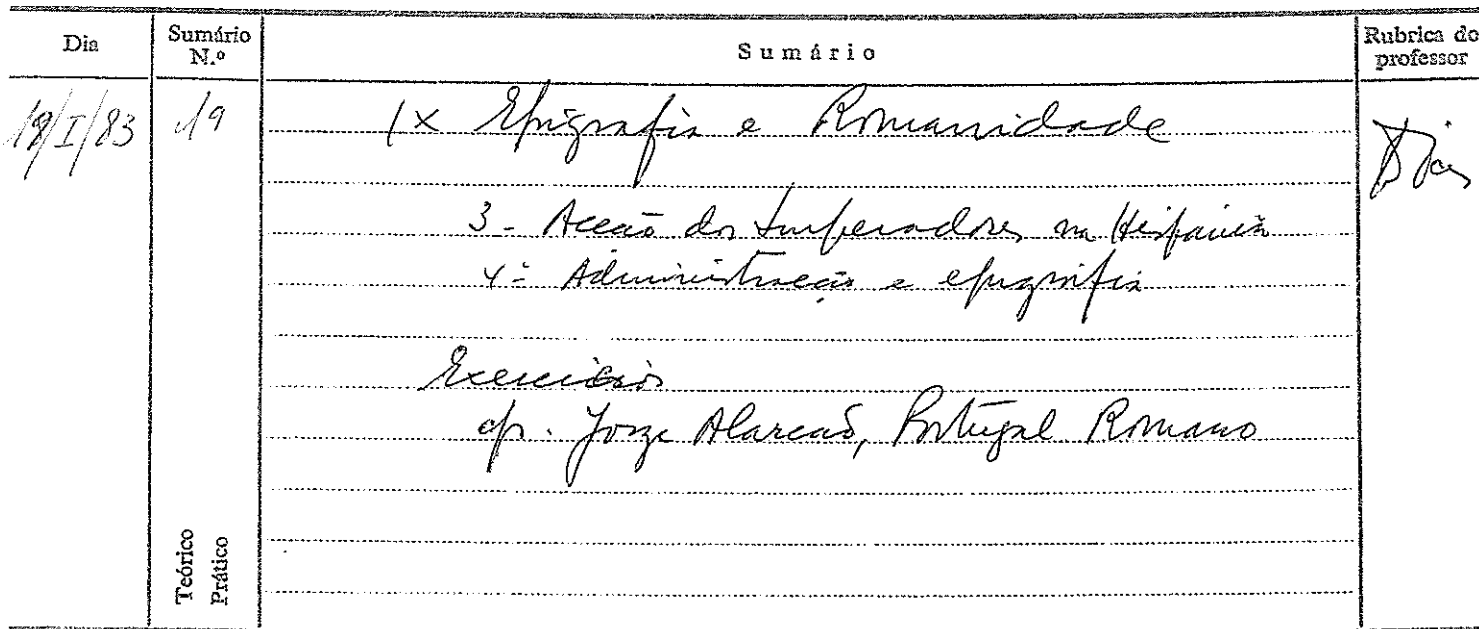 Dia
Sumário N.º
Sumário
Rubrica do professor
18/I/83
19
IX Epigrafia e Romanidade
3 - Acção dos Imperadores na Hispânia
4 - Administração e epigrafia
Exercícios
cfr. Jorge Alarcão, Portugal Romano
Teórico
Prático